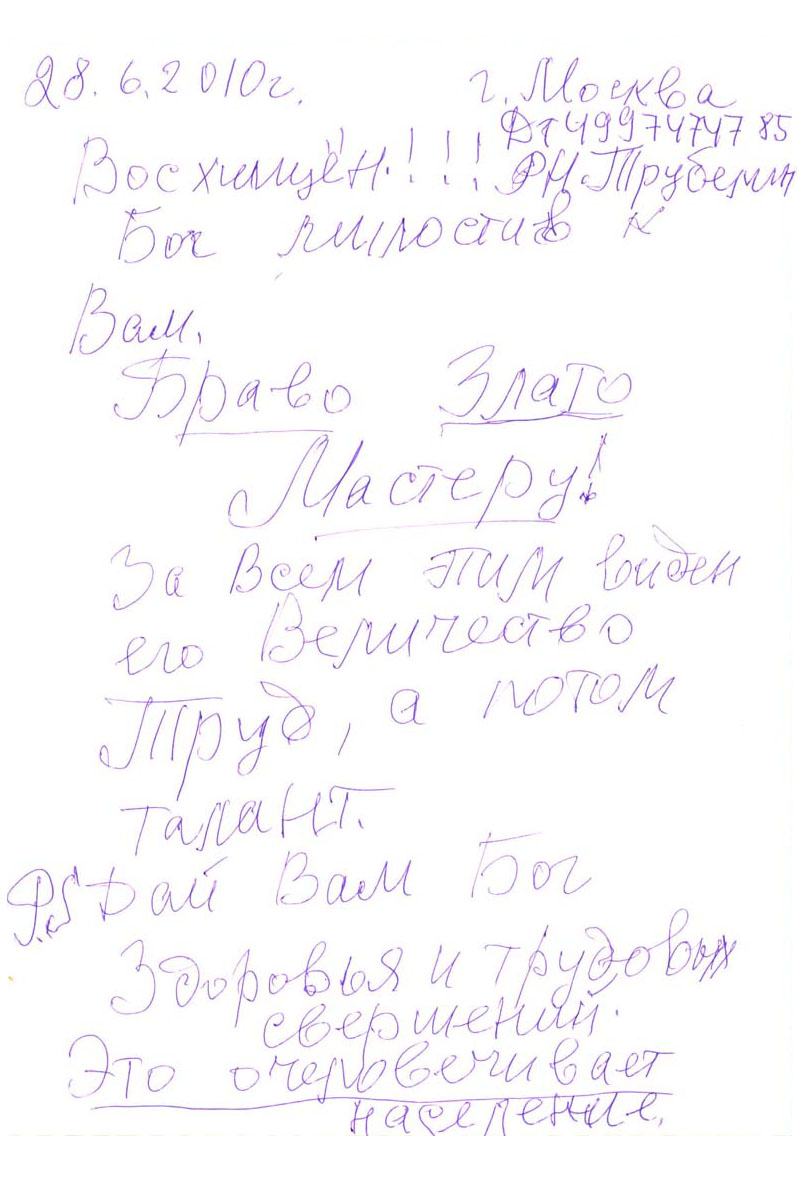 28.6.2010г. г. Москва
Дт 4997474785
Восхищён!!! РН. Трубемин
Бог милостив к
Вам.
Браво Злато
Мастеру!
За Всем этим виден
его Величество
Труд, а потом
талант.
P.S Дай Вам Бог
Здоровья и трудовых
свершений.
Это очеловечивает
население.